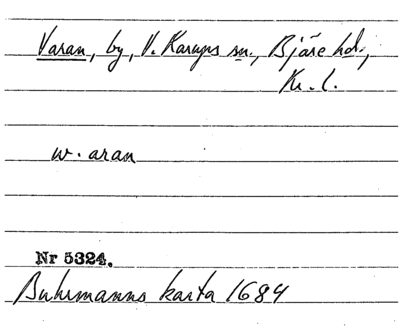 Varan, by, V. Karups sn., Bjäre hd.,
Kr. l.
w. aran
Nr 5324.
Buhrmanns karta 1684